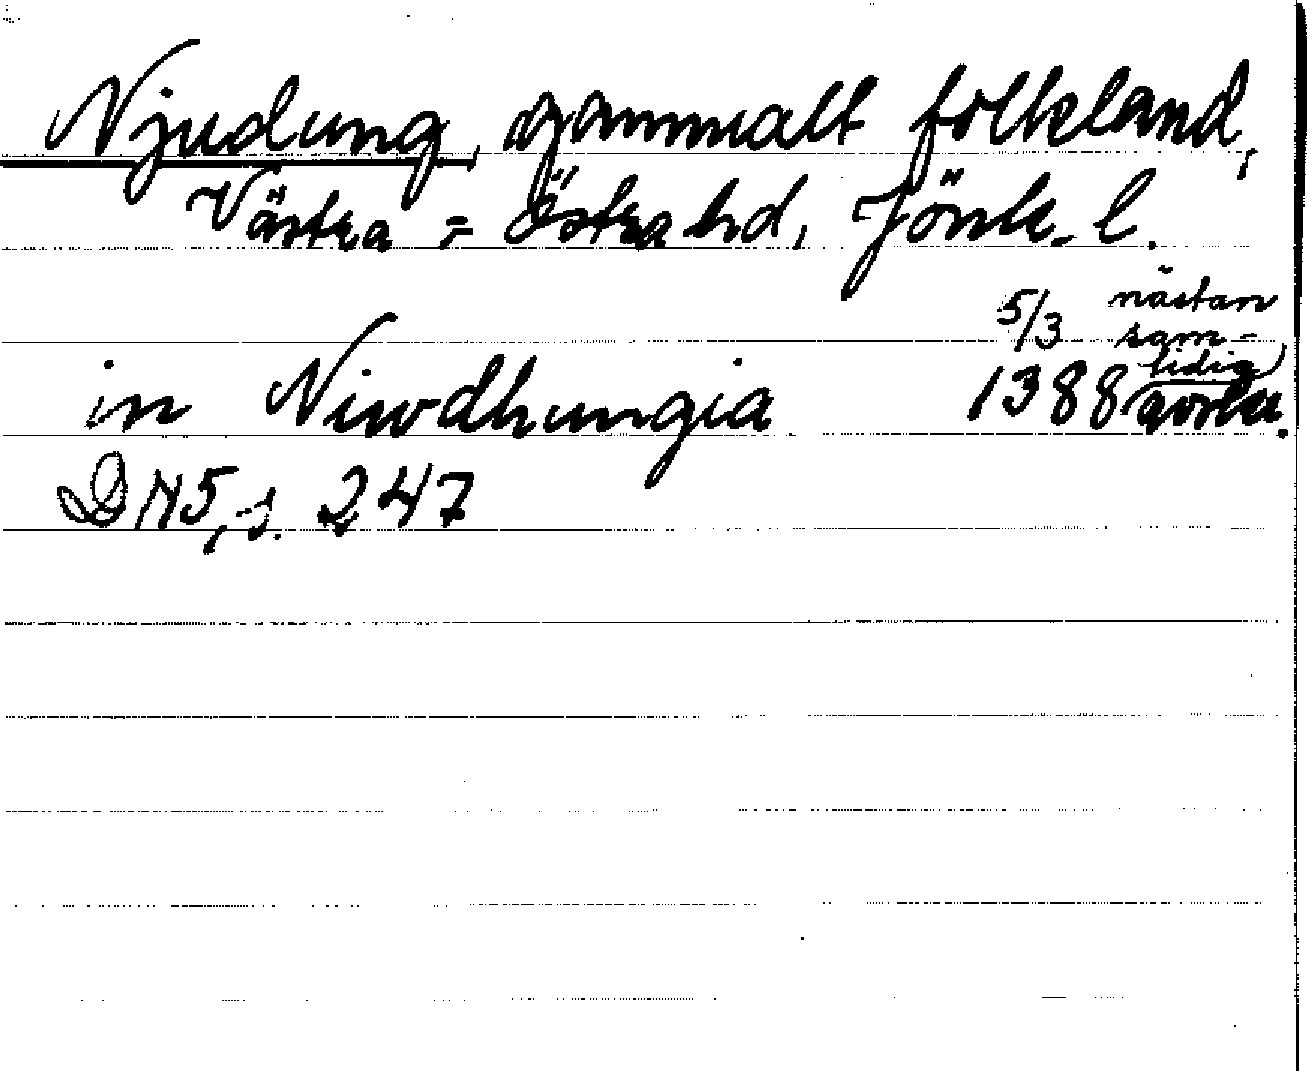 Njudung, gammalt folkland,
Västra o Östra hd, Jönk. l.
in Niwdhungia 5/3 1388 nästan sam-
tidig avskr.
DN 5, s. 247